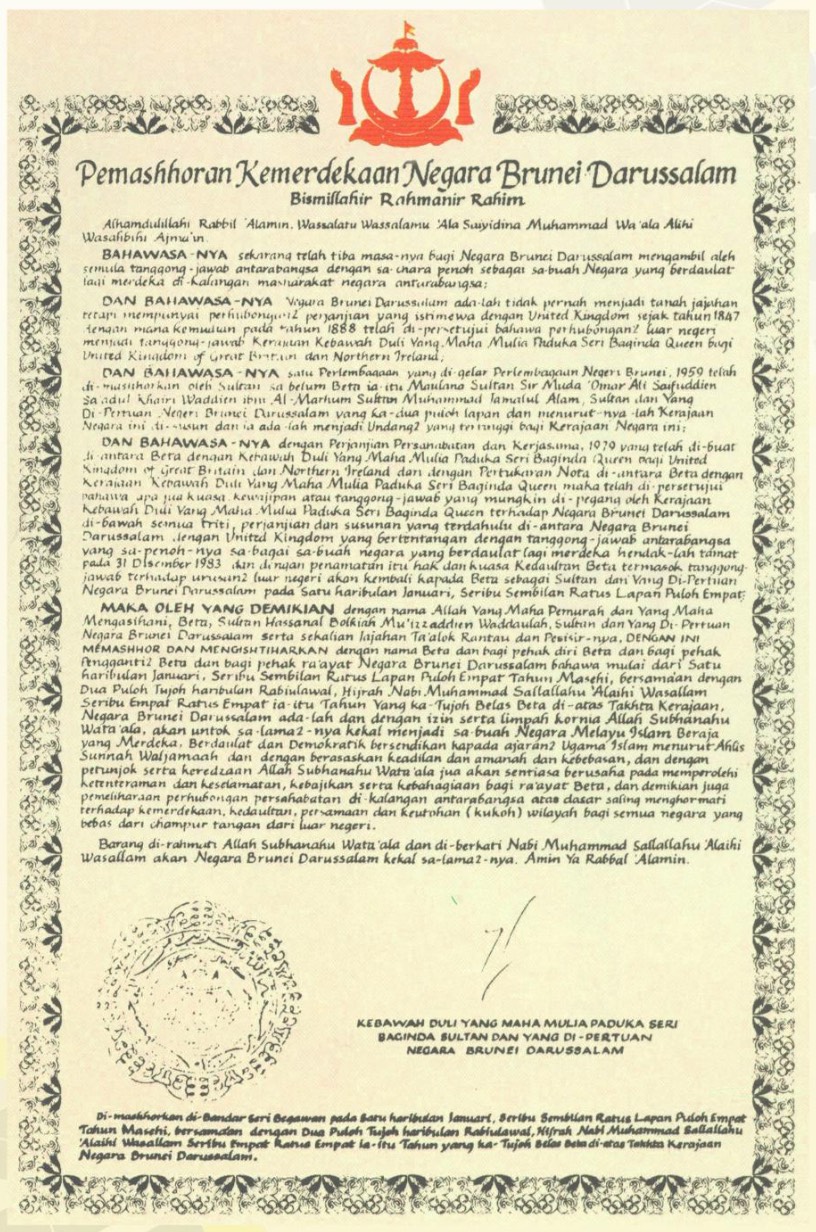 Pemashhoran Kemerdekaan Negara Brunei Darussalam
Bismillahir Rahmanir Rahim
Alhamdulillahi Rabbil 'Alamin, Wassalatu Wassalamu 'Ala Saiyidina Muhammad Wa'ala Alihi
Wasahibihi Ajma'in.
BAHAWASA-NYA sekarang telah tiba masa-nya bagi Negara Brunei Darussalam mengambil aleh
semula tanggong-jawab antarabangsa dengan sa-chara penoh sebagai sa-buah Negara yang berdaulat
lagi merdeka di-kalangan masharakat negara antarabangsa;
DAN BAHAWASA-NYA Negara Brunei Darussalam ada-lah tidak pernah menjadi tanah jajahan
tetapi mempunyai perhubongan2 perjanjian yang istimewa dengan United Kingdom sejak tahun 1847
dengan mana kemudian pada tahun 1888 telah di-persetujui bahawa perhubongan2 luar negeri
menjadi tanggong-jawab Kerajaan Kebawah Duli Yang Maha Mulia Paduka Seri Baginda Queen bagi
United Kingdom of Great Britain dan Northern Ireland;
DAN BAHAWASA-NYA satu Perlembagaan yang di-gelar Perlembagaan Negeri Brunei, 1959 telah
di-mashhorkan oleh Sultan sa-belum Beta ia-itu Maulana Sultan Sir Muda 'Omar Ali Saifuddien
Sa'adul Khairi Waddien ibni Al-Marhum Sultan Muhammad Jamalul Alam, Sultan dan Yang
Di-Pertuan Negeri Brunei Darussalam yang ka-dua puloh lapan dan menurut-nya-lah Kerajaan
Negara ini di-susun dan ia ada-lah menjadi Undang2 yang tertinggi bagi Kerajaan Negara ini;
DAN BAHAWASA-NYA dengan Perjanjian Persahabatan dan Kerjasama, 1979 yang telah di-buat
di-antara Beta dengan Kebawah Duli Yang Maha Mulia Paduka Seri Baginda Queen bagi United
Kingdom of Great Britain dan Northern Ireland dan dengan Pertukaran Nota di-antara Beta dengan
Kerajaan Kebawah Duli Yang Maha Mulia Paduka Seri Baginda Queen maka telah di-persetujui
bahawa apa jua kuasa kewajipan atau tanggong-jawab yang mungkin di-pegang oleh Kerajaan
Kebawah Duli Yang Maha Mulia Paduka Seri Baginda Queen terhadap Negara Brunei Darussalam
di-bawah semua triti, perjanjian dan susunan yang terdahulu di-antara Negara Brunei
Darussalam dengan United Kingdom yang bertentangan dengan tanggong-jawab antarabangsa
yang sa-penoh-nya sa-bagai sa-buah negara yang berdaulat lagi merdeka hendak-lah tamat
pada 31 Disember 1983 dan dengan penamatan itu hak dan kuasa Kedaultan Beta termasok tanggong-
jawab terhadap urusan2 luar negeri akan kembali kapada Beta sebagai Sultan dan Yang Di-Pertuan
Negara Brunei Darussalam pada Satu haribulan Januari, Seribu Sembilan Ratus Lapan Puloh Empat;
MAKA OLEH YANG DEMIKIAN dengan nama Allah Yang Maha Pemurah dan Yang Maha
Mengasihani, Beta, Sultan Hassanal Bolkiah Mu'izzaddien Waddaulah, Sultan dan Yang Di-Pertuan
Negara Brunei Darussalam serta sekalian Jajahan Ta'alok Rantau dan Pesisir-nya, DENGAN INI
MEMASHHOR DAN MENGISHTIHARKAN dengan nama Beta dan bagi pehak diri Beta dan bagi pehak
Pengganti2 Beta dan bagi pehak ra'ayat Negara Brunei Darussalam bahawa mulai dari Satu
haribulan Januari, Seribu Sembilan Ratus Lapan Puloh Empat Tahun Masehi, bersamaan dengan
Dua Puloh Tujoh haribulan Rabiulawal, Hijrah Nabi Muhammad Sallallahu 'Alaihi Wasallam
Seribu Empat Ratus Empat ia-itu Tahun Yang ka-Tujoh Belas Beta di-atas Takhta Kerajaan,
Negara Brunei Darussalam ada-lah dan dengan izin serta limpah kornia Allah Subhanahu
Wata'ala, akan untok sa-lama2-nya kekal menjadi sa-buah Negara Melayu Islam Beraja
yang Merdeka, Berdaulat dan Demokratik bersendikan kapada ajaran2 Ugama Islam menurut Ahlis
Sunnah Waljamaah dan dengan berasaskan keadilan dan amanah dan kebebasan, dan dengan
petunjok serta keredzaan Allah Subhanahu Wata'ala jua akan sentiasa berusaha pada memperolehi
ketenteraman dan keselamatan, kebajikan serta kebahagiaan bagi ra'ayat Beta, dan demikian juga
pemeliharaan perhubongan persahabatan di-kalangan antarabangsa atas dasar saling menghormati
terhadap kemerdekaan, kedaultan, persamaan dan keutohan (kukoh) wilayah bagi semua negara yang
bebas dari champur tangan dari luar negeri.
Barang di-rahmati Allah Subhanahu Wata'ala dan di-berkati Nabi Muhammad Sallallahu 'Alaihi
Wasallam akan Negara Brunei Darussalam kekal sa-lama2-nya. Amin Ya Rabbal 'Alamin.
KEBAWAH DULI YANG MAHA MULIA PADUKA SERI
BAGINDA SULTAN DAN YANG DI-PERTUAN
NEGARA BRUNEI DARUSSALAM
Di-mashhorkan di-Bandar Seri Begawan pada Satu haribulan Januari, Seribu Sembilan Ratus Lapan Puloh Empat
Tahun Masehi, bersamaan dengan Dua Puloh Tujoh haribulan Rabiulawal, Hijrah Nabi Muhammad Sallallahu
'Alaihi Wasallam Seribu Empat Ratus Empat ia-itu Tahun yang ka-Tujoh Belas Beta di-atas Takhta Kerajaan
Negara Brunei Darussalam.